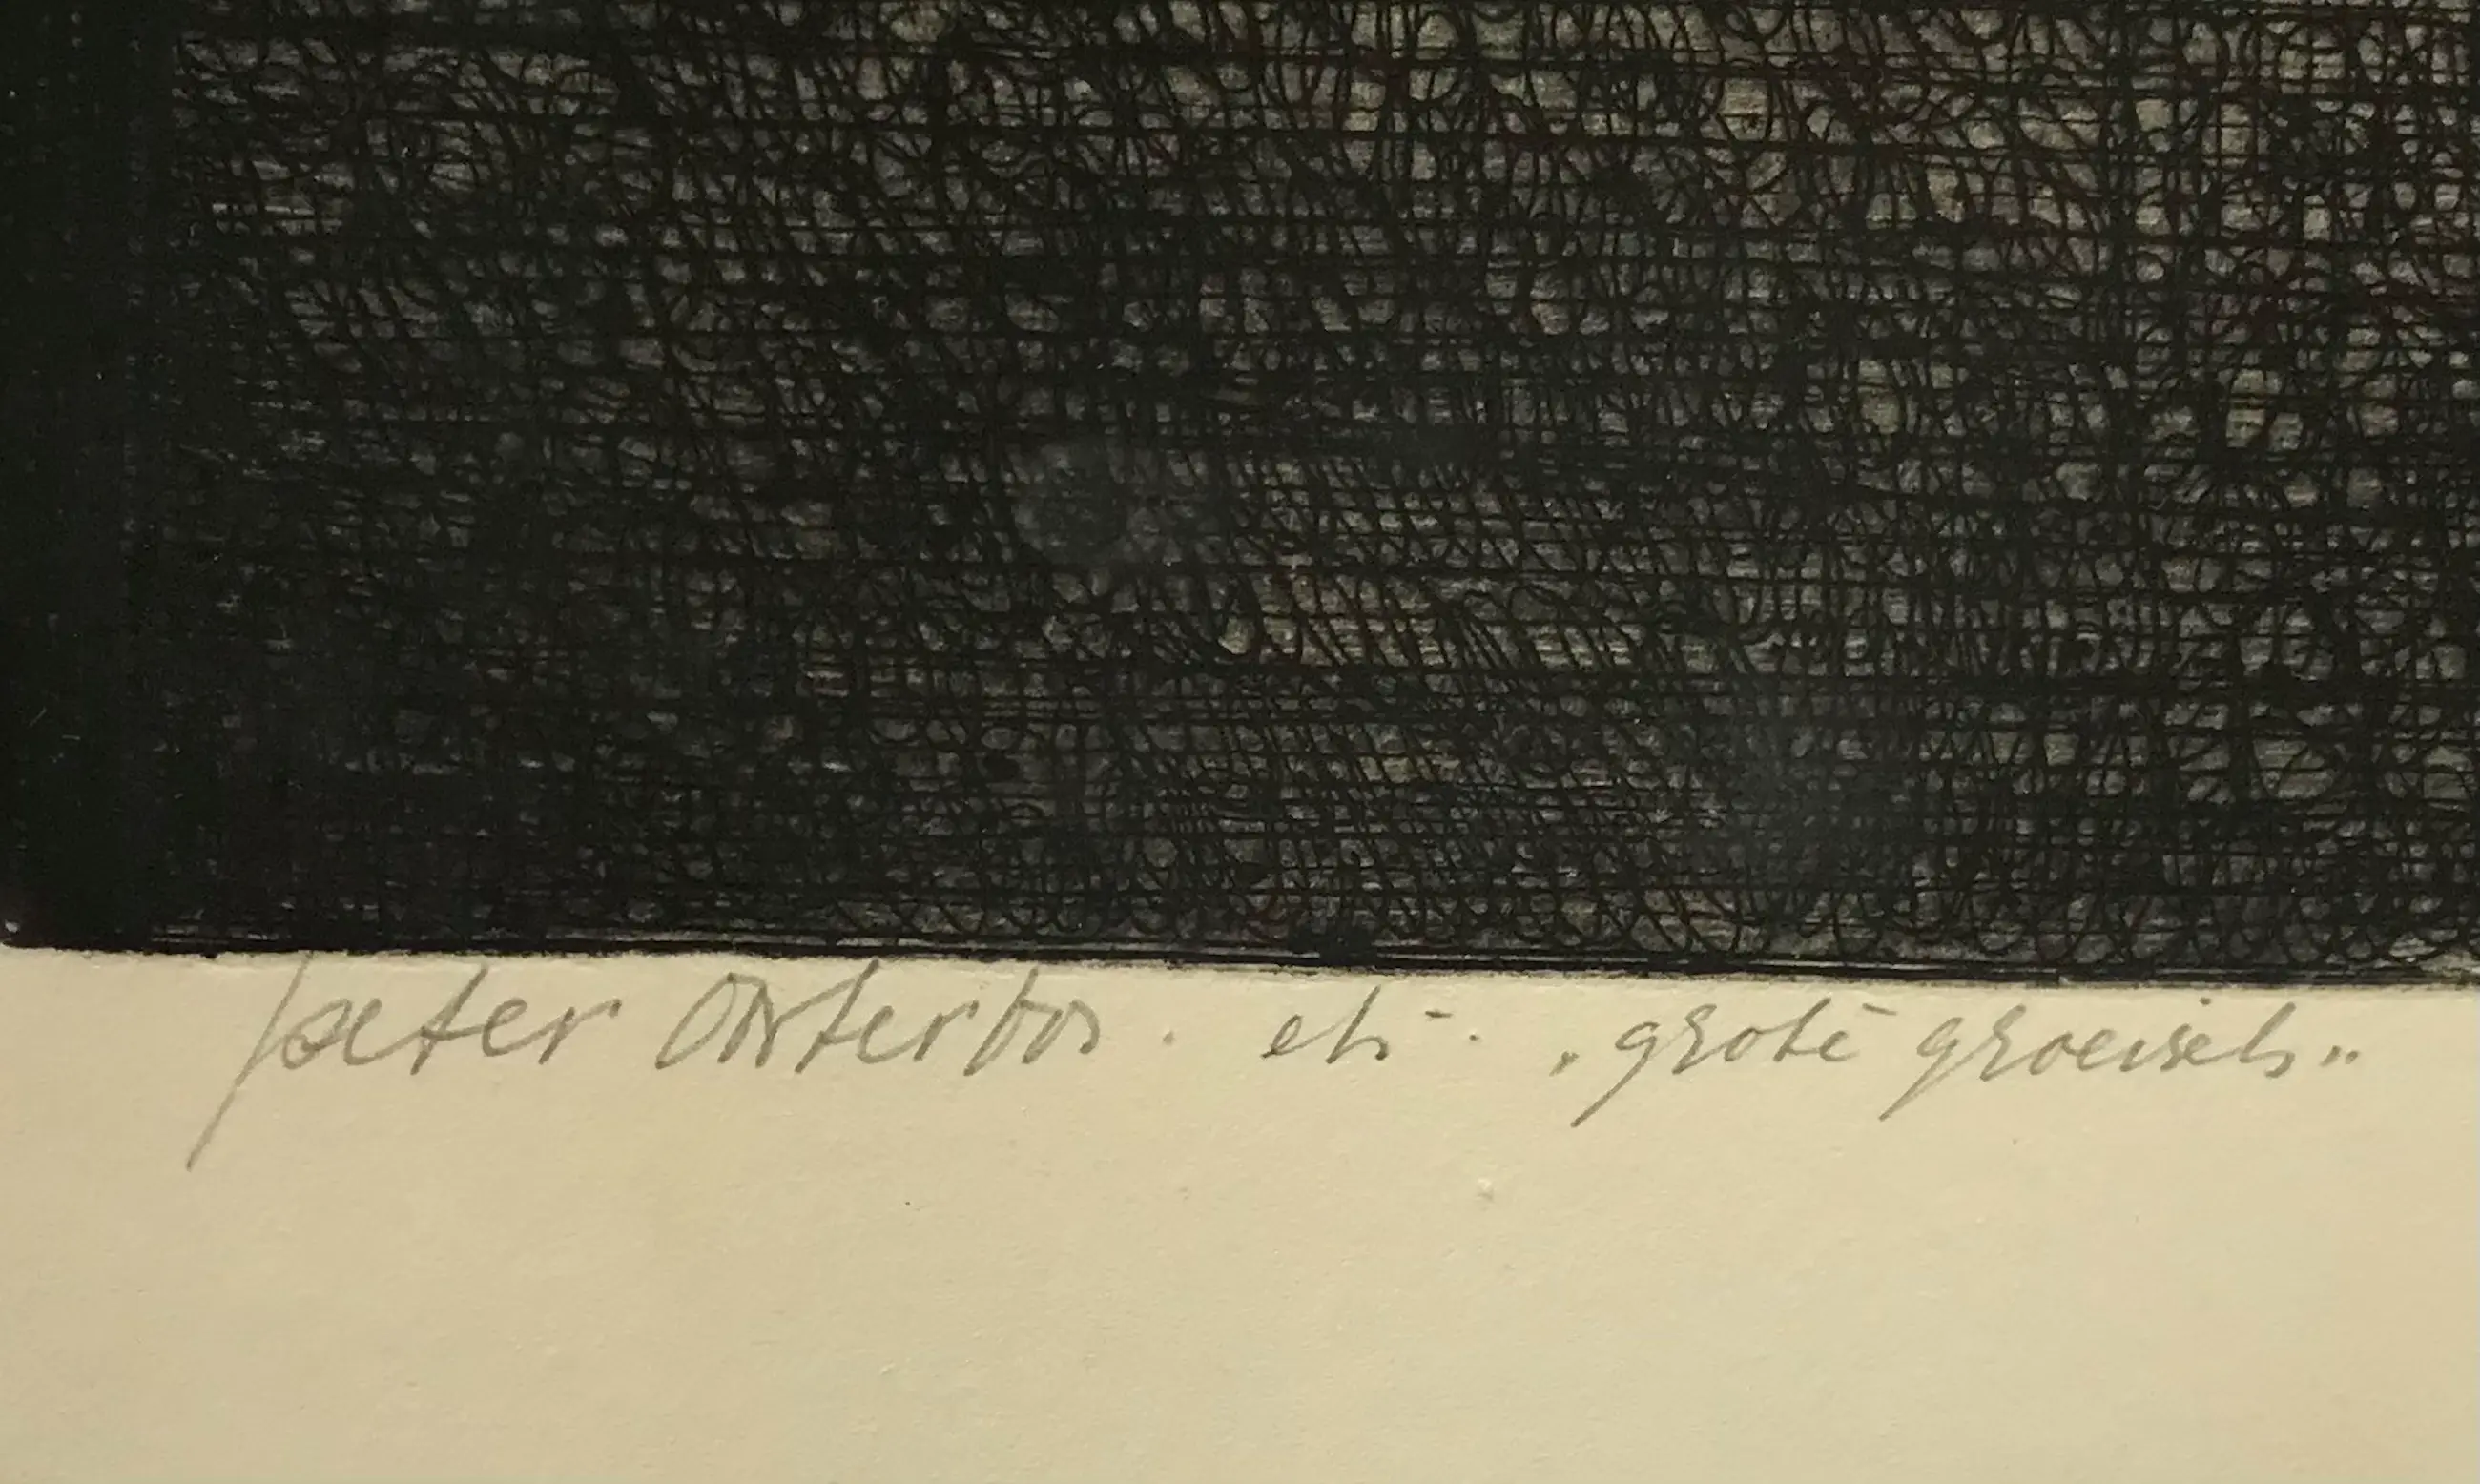 pieter Oosterbos. ets. „grote groeisels„